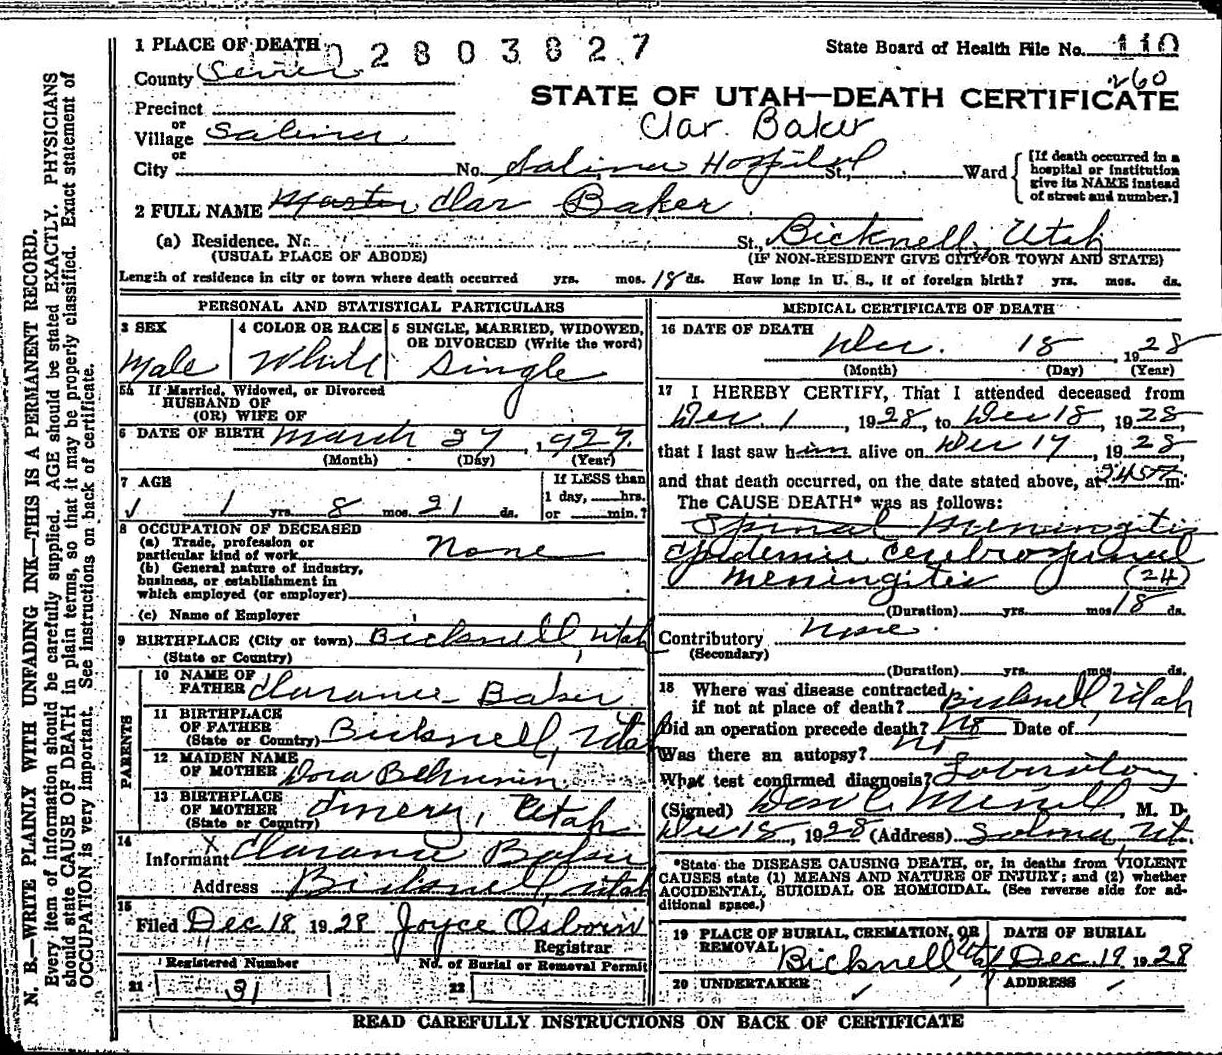 1 PLACE OF DEATH 02803827 State Board of Health File No. 110
County Sevier 260
STATE OF UTAH—DEATH CERTIFICATE
Precinct
or
Village Salina Clar. Baker
or
City No. Salina Hospital St., Ward [If death occurred in a hospital or institution give its NAME instead of street and number.]
2 FULL NAME Master Clar Baker
(a) Residence. No. St., Bicknell, Utah
(USUAL PLACE OF ABODE) (IF NON-RESIDENT GIVE CITY OR TOWN AND STATE)
Length of residence in city or town where death occurred yrs. mos. 18 ds. How long in U. S., if of foreign birth? yrs. mos. ds.
PERSONAL AND STATISTICAL PARTICULARS
3 SEX 4 COLOR OR RACE 5 SINGLE, MARRIED, WIDOWED,
OR DIVORCED (Write the word)
Male White Single
5A If Married, Widowed, or Divorced
HUSBAND OF
(OR) WIFE OF
6 DATE OF BIRTH March 27, 1927.
(Month) (Day) (Year)
7 AGE If LESS than
1 day, hrs.
or min.?
1 yrs. 8 mos. 21 ds.
8 OCCUPATION OF DECEASED
(a) Trade, profession or
particular kind of work None
(b) General nature of industry,
business, or establishment in
which employed (or employer)
(c) Name of Employer
9 BIRTHPLACE (City or town) Bicknell, Utah
(State or Country)
PARENTS
10 NAME OF
FATHER Clarance Baker
11 BIRTHPLACE
OF FATHER
(State or Country) Bicknell, Utah
12 MAIDEN NAME
OF MOTHER Dora Behunin
13 BIRTHPLACE
OF MOTHER
(State or Country) Emery, Utah
14
Informant X Clarance Baker
Address Bicknell, Utah
15
Filed Dec 18 1928 Joyce Osborn
Registrar
Registered Number No. of Burial or Removal Permit
21 31 22
MEDICAL CERTIFICATE OF DEATH
16 DATE OF DEATH
Dec. 18, 1928
(Month) (Day) (Year)
17 I HEREBY CERTIFY, That I attended deceased from
Dec. 1, 1928, to Dec 18, 1928
that I last saw him alive on Dec 17, 1928
and that death occurred, on the date stated above, at m.
The CAUSE DEATH* was as follows:
Spinal Meningitis
Epidemic Cerebrospinal
Meningitis (24)
(Duration) yrs. mos 18 ds.
Contributory None.
(Secondary)
(Duration) yrs. mos. ds.
18 Where was disease contracted
if not at place of death? Bicknell, Utah
Did an operation precede death? No Date of
Was there an autopsy? No
What test confirmed diagnosis? Laboratory
(Signed) M. D.
Dec 18, 1928 (Address) Salina, Ut.
*State the DISEASE CAUSING DEATH, or, in deaths from VIOLENT
CAUSES state (1) MEANS AND NATURE OF INJURY; and (2) whether
ACCIDENTAL, SUICIDAL OR HOMICIDAL. (See reverse side for ad-
ditional space.)
19 PLACE OF BURIAL, CREMATION, OR
REMOVAL Bicknell Utah
DATE OF BURIAL
Dec. 19 1928
20 UNDERTAKER ADDRESS
READ CAREFULLY INSTRUCTIONS ON BACK OF CERTIFICATE
N. B.—WRITE PLAINLY WITH UNFADING INK—THIS IS A PERMANENT RECORD.
Every item of information should be carefully supplied. AGE should be stated EXACTLY. PHYSICIANS
should state CAUSE OF DEATH in plain terms, so that it may be properly classified. Exact statement of
OCCUPATION is very important. See instructions on back of certificate.